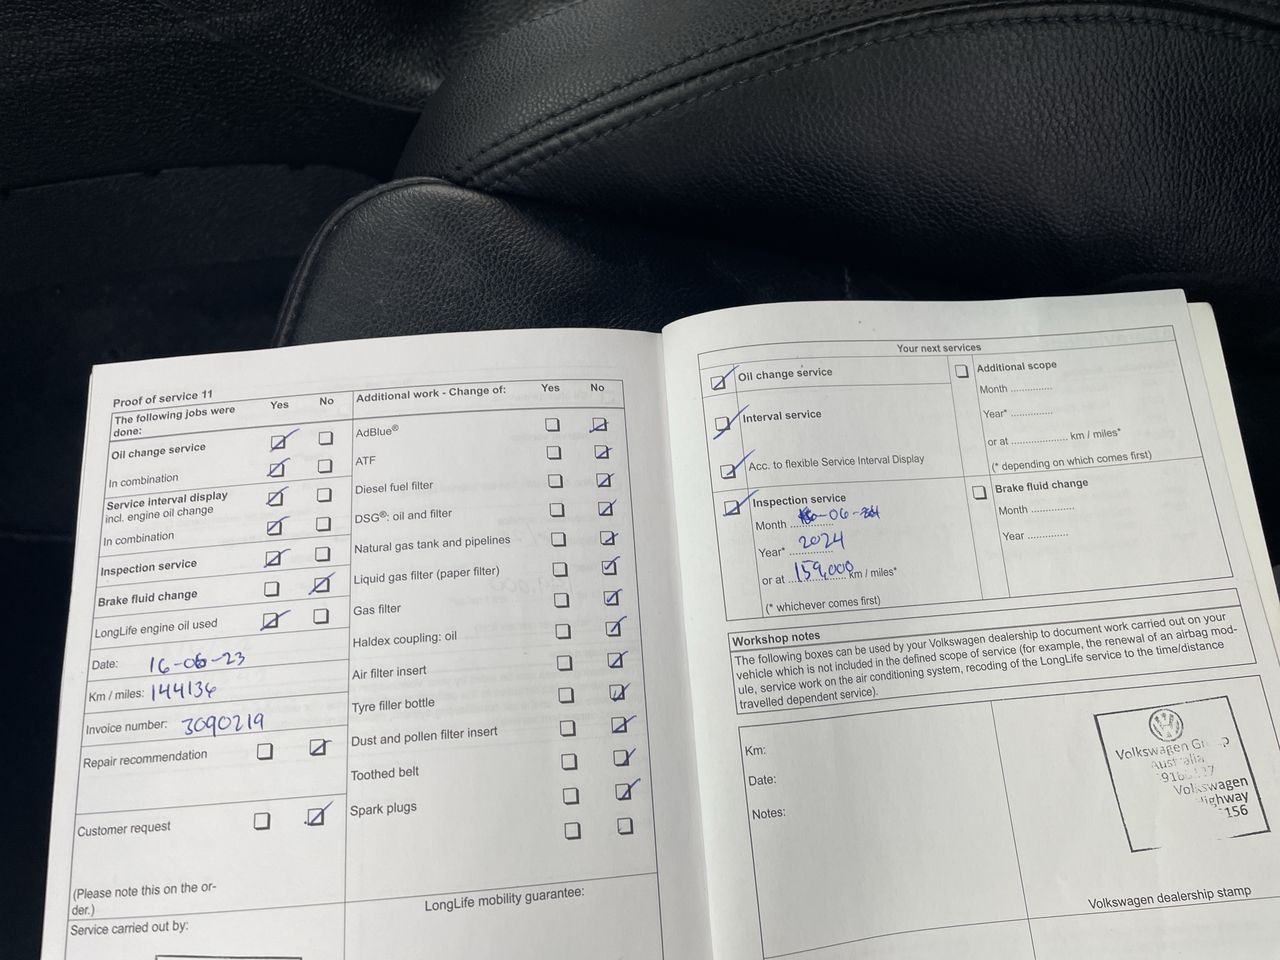 Proof of service 11
The following jobs were done: Yes No
Oil change service
In combination
Service interval display
incl. engine oil change
In combination
Inspection service
Brake fluid change
LongLife engine oil used
Date: 16-06-23
Km / miles: 144136
Invoice number: 3090219
Repair recommendation
Customer request
(Please note this on the or-
der.)
Service carried out by:
Additional work - Change of: Yes No
AdBlue®
ATF
Diesel fuel filter
DSG®: oil and filter
Natural gas tank and pipelines
Liquid gas filter (paper filter)
Gas filter
Haldex coupling: oil
Air filter insert
Tyre filler bottle
Dust and pollen filter insert
Toothed belt
Spark plugs
LongLife mobility guarantee:
Your next services
Oil change service
Interval service
Acc. to flexible Service Interval Display
Inspection service
Month -06-
Year* 2024
or at 159,000 km / miles*
(* whichever comes first)
Additional scope
Month
Year*
or at km / miles*
(* depending on which comes first)
Brake fluid change
Month
Year
Workshop notes
The following boxes can be used by your Volkswagen dealership to document work carried out on your
vehicle which is not included in the defined scope of service (for example, the renewal of an airbag mod-
ule, service work on the air conditioning system, recoding of the LongLife service to the time/distance
travelled dependent service).
Km:
Date:
Notes:
Volkswagen
Australia
Volkswagen
Highway
156
Volkswagen dealership stamp